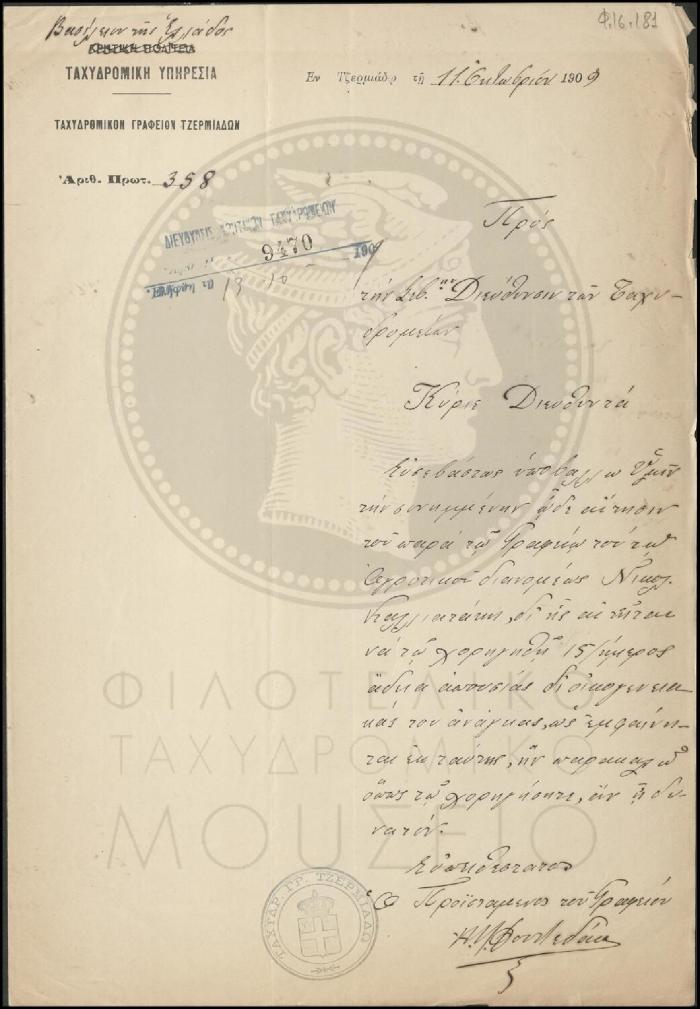 Φ.16.181
Βασίλειον της Ελλάδος
ΚΡΗΤΙΚΗ ΠΟΛΙΤΕΙΑ
ΤΑΧΥΔΡΟΜΙΚΗ ΥΠΗΡΕΣΙΑ
Εν Τζερμιάδῳ τῇ 11 Οκτωβρίου 1909
ΤΑΧΥΔΡΟΜΙΚΟΝ ΓΡΑΦΕΙΟΝ ΤΖΕΡΜΙΑΔΩΝ
Ἀριθ. Πρωτ. 358
ΔΙΕΥΘΥΝΣΙΣ ΚΡΗΤΙΚΩΝ ΤΑΧΥΔΡΟΜΕΙΩΝ
9470
13 10 1909
Πρός
τήν Σεβ. Διεύθυνσιν των Ταχυ-
δρομείων
Κύριε Διευθυντά
Ευσεβάστως υποβάλλω Υμίν
την συνημμένην ώδε αίτησιν
του παρά τῷ Γραφείῳ τούτῳ
Αγροτικού διανομέως Νικολ.
δι' ης αιτείται
να τῷ χορηγηθῇ 15/ήμερος
άδεια απουσίας δι' οικογενεια-
κάς του ανάγκας, ως εμφαίνε-
ται εκ ταύτης, ην παρακαλώ
όπως τῷ χορηγήσητε, αν ῇ δυ-
νατόν.
Ευπειθέστατος
Ο Προϊστάμενος του Γραφείου
ΤΑΧΥΔΡ. ΓΡ. ΤΖΕΡΜΙΑΔΩ
ΦΙΛΟΤΕΛΙΚΟ
ΤΑΧΥΔΡΟΜΙΚΟ
ΜΟΥΣΕΙΟ